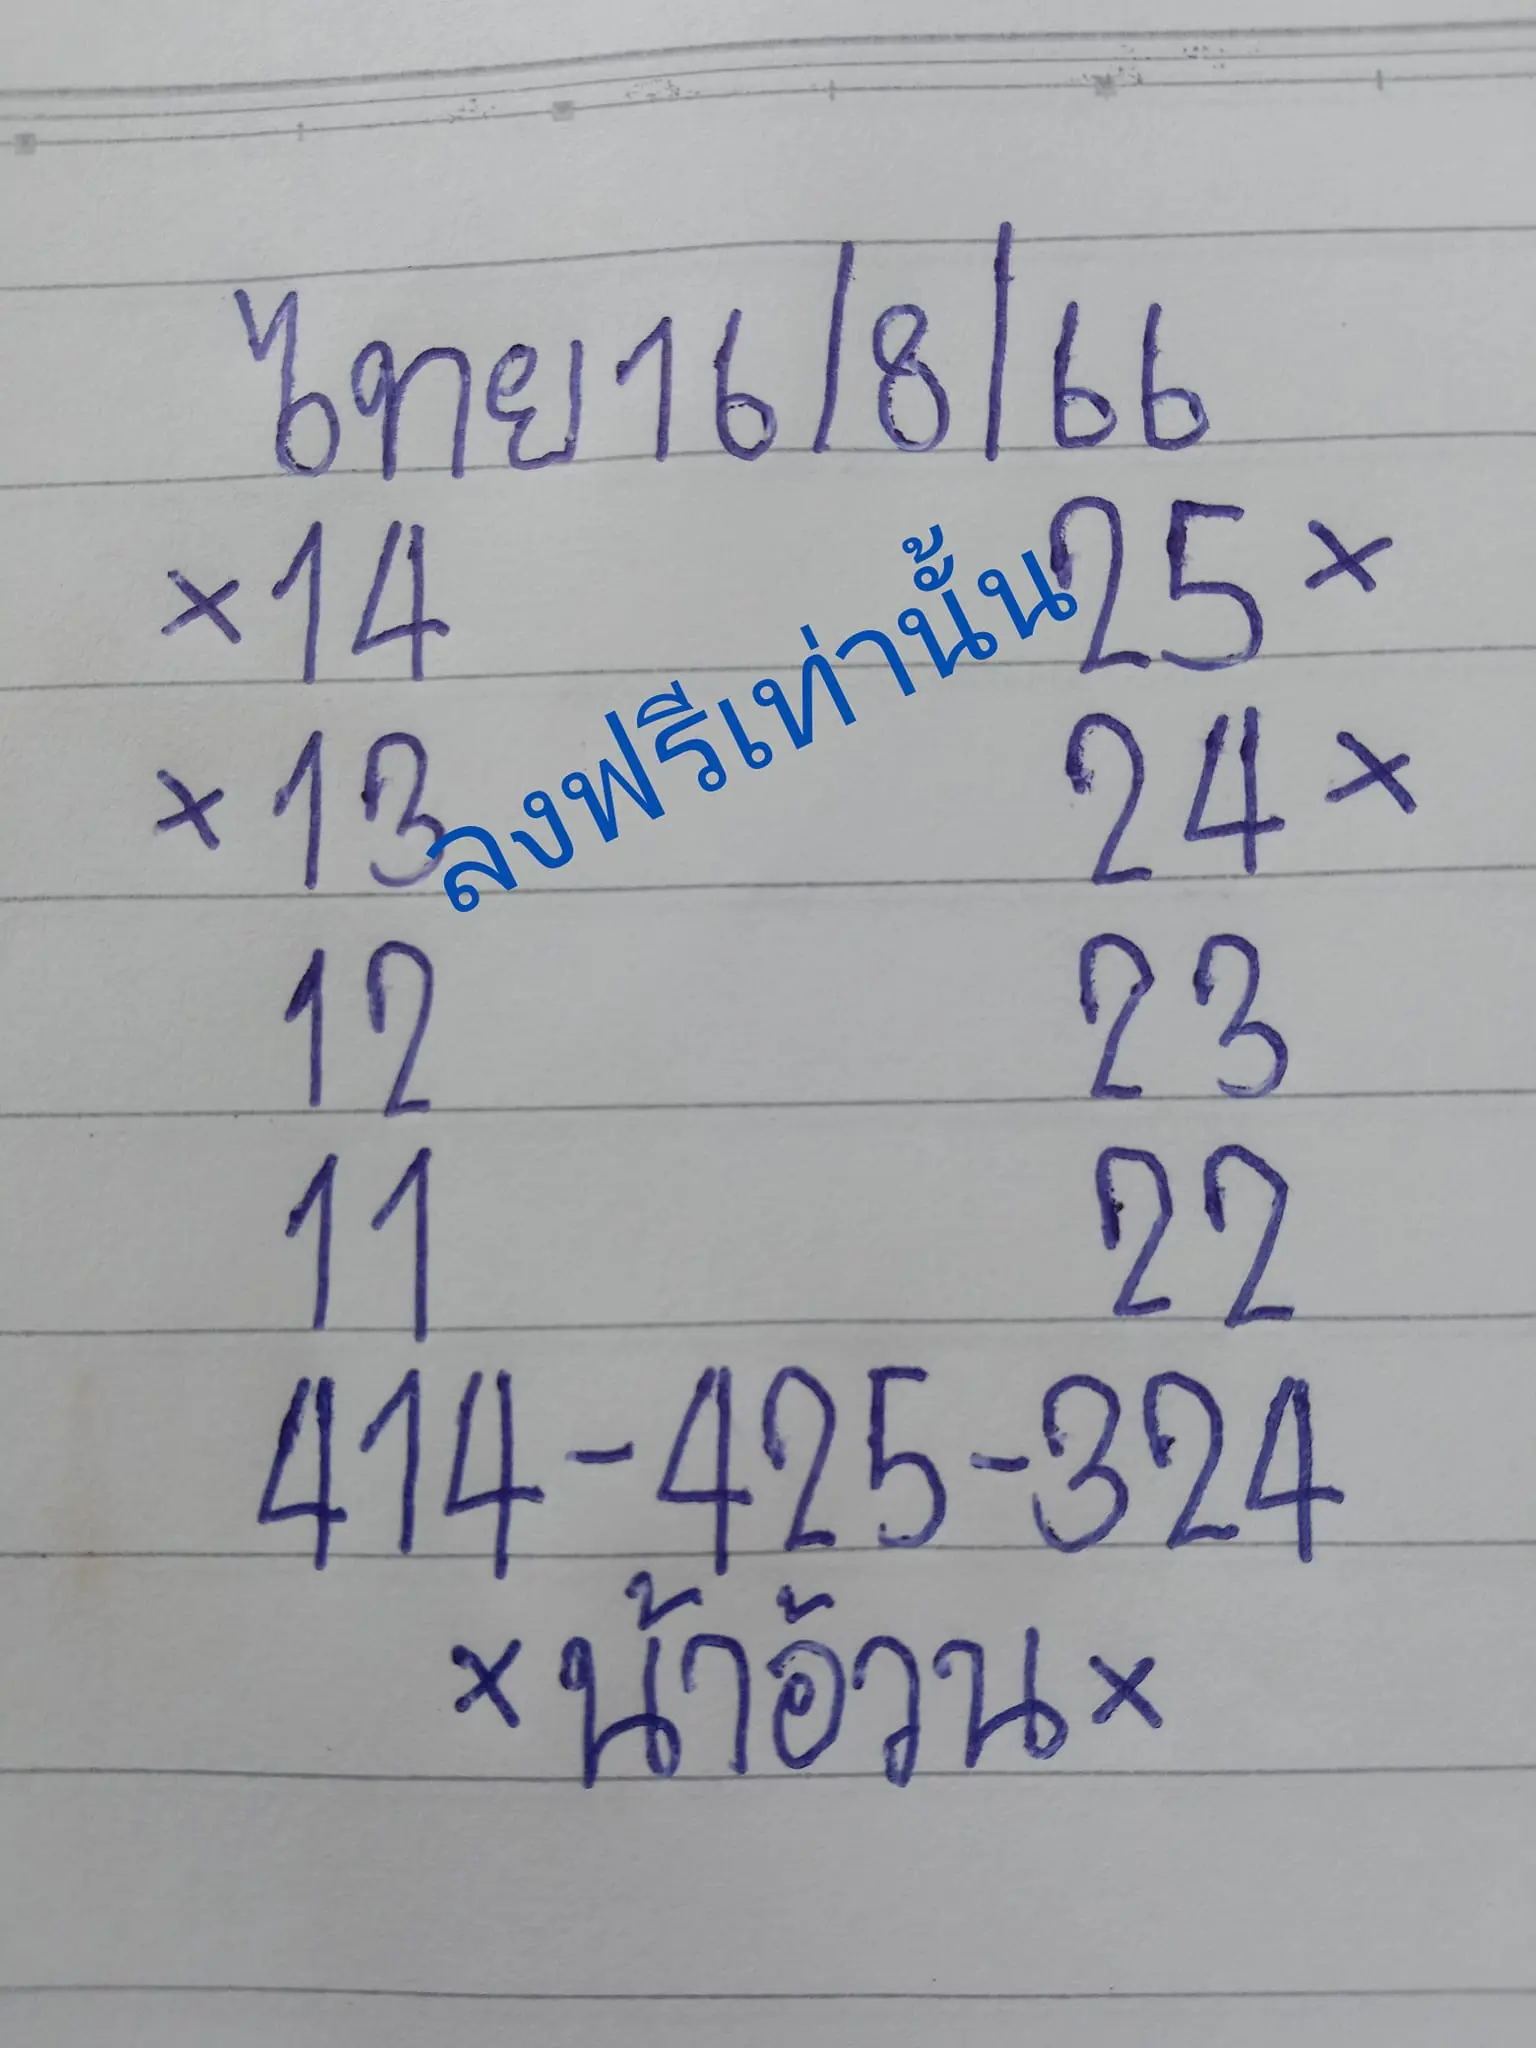 ไทย 16/8/66
×14 25×
×13 24×
ลงฟรีเท่านั้น
12 23
11 22
414-425-324
×น้าอ้วน×